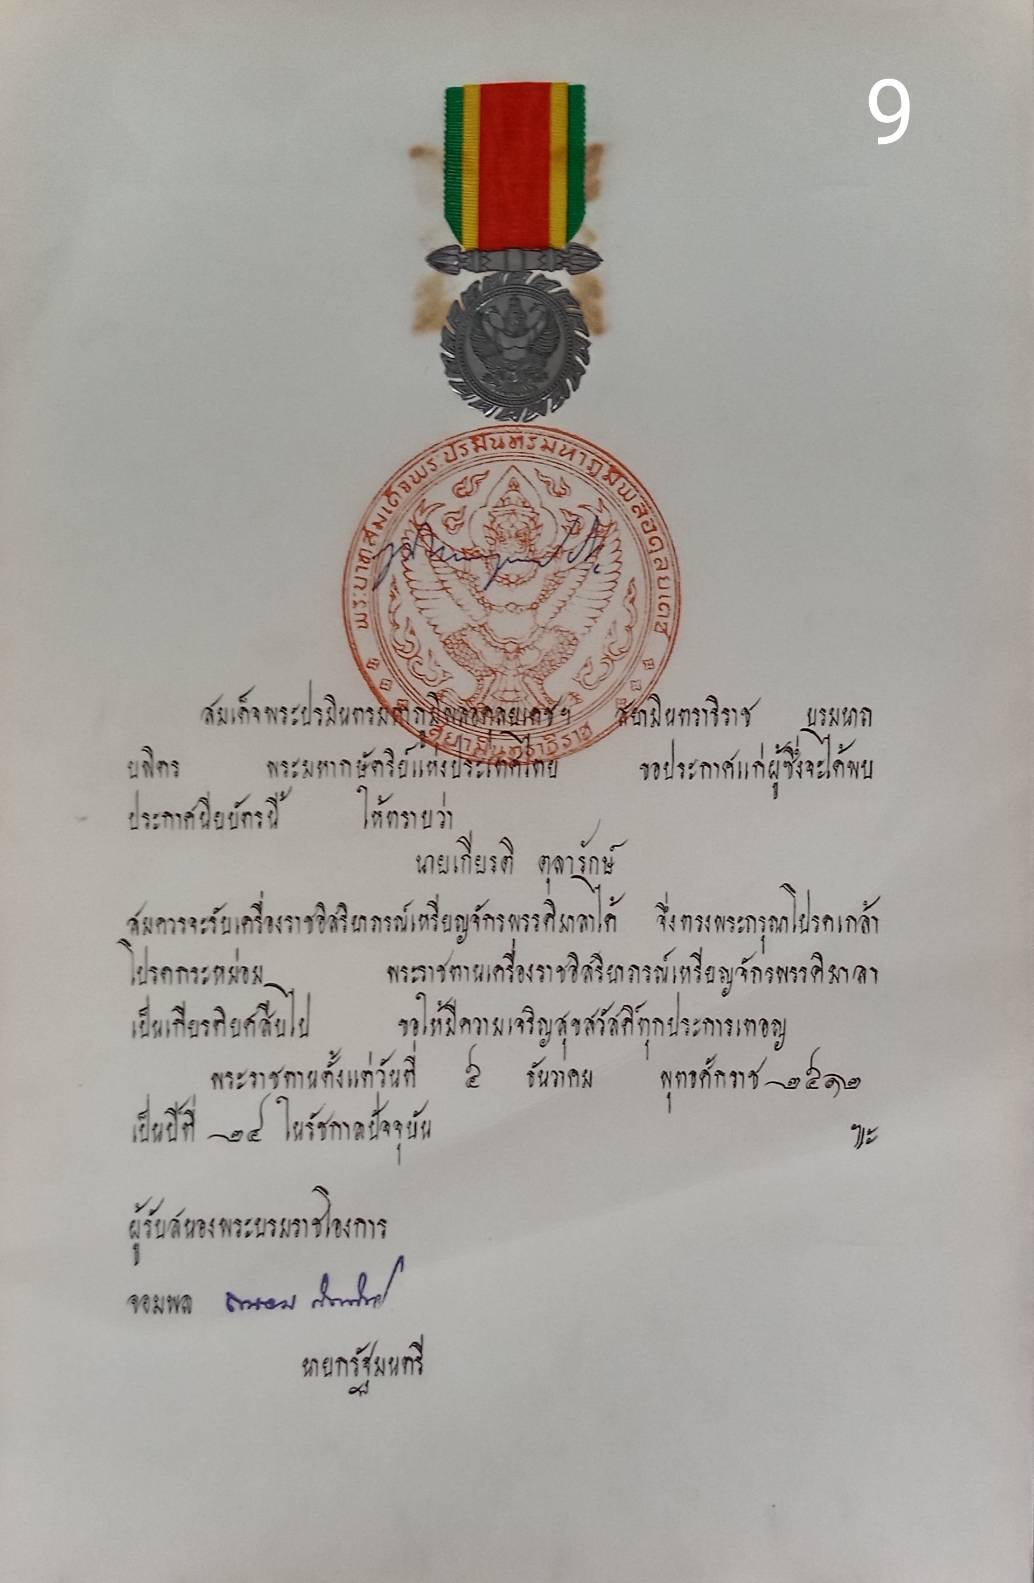 9
พระบาทสมเด็จพระปรมินทรมหาภูมิพลอดุลยเดช
สยามินทราธิราช
สมเด็จพระปรมินทรมหาภูมิพลอดุลยเดชฯ สยามินทราธิราช บรมนาถ
บพิตร พระมหากษัตริย์แห่งประเทศไทย ขอประกาศแก่ผู้ซึ่งจะได้พบ
ประกาศนียบัตรนี้ ให้ทราบว่า
นายเกียรติ ตุลารักษ์
สมควรจะรับเครื่องราชอิสริยาภรณ์เหรียญจักรพรรดิมาลาได้ จึ่งทรงพระกรุณาโปรดเกล้า
โปรดกระหม่อม พระราชทานเครื่องราชอิสริยาภรณ์เหรียญจักรพรรดิมาลา
เป็นเกียรติยศสืบไป ขอให้มีความเจริญสุขสวัสดิ์ทุกประการเทอญ
พระราชทานตั้งแต่วันที่ ๕ ธันวาคม พุทธศักราช ๒๕๑๒
เป็นปีที่ ๒๔ ในรัชกาลปัจจุบัน ฯะ
ผู้รับสนองพระบรมราชโองการ
จอมพล ถนอม กิตติขจร
นายกรัฐมนตรี